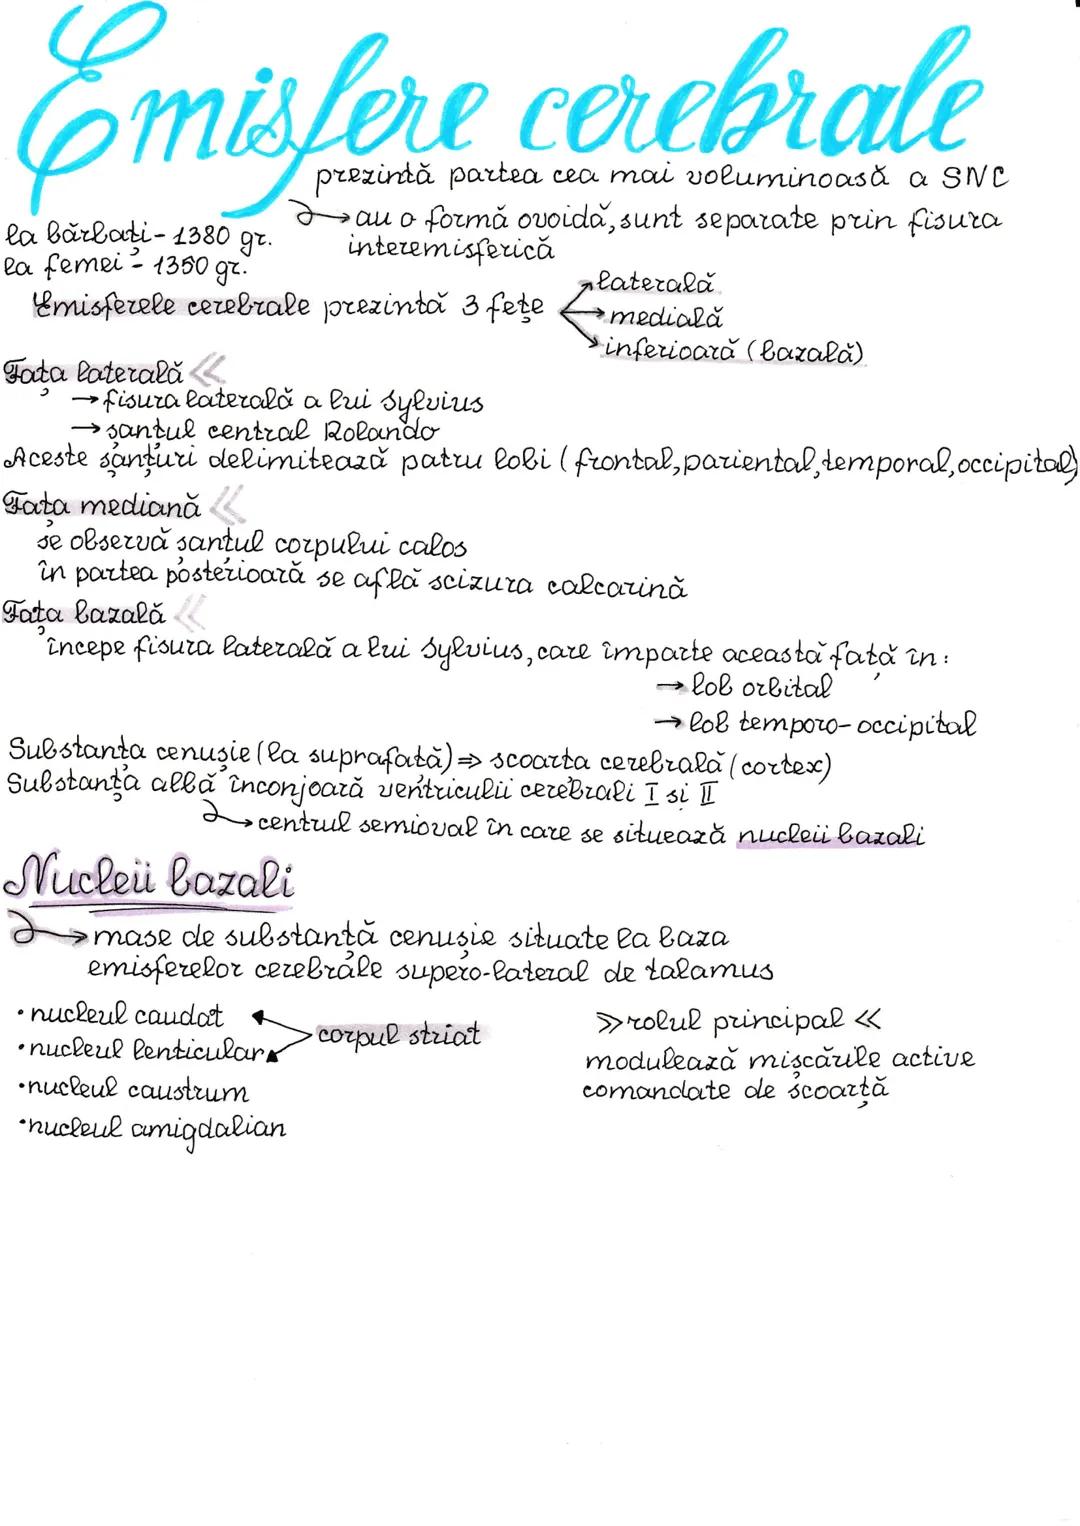 Emisfere cerebrale
prezintă partea cea mai voluminoasă a SNC
→ au o formă ovoidă, sunt separate prin fisura
interemisferică
la bărbați - 1380 gr.
la femei - 1350 gr.
Emisferele cerebrale prezintă 3 fețe
→ laterală
→ medială
→ inferioară (bazală)
Fața laterală <<
→ fisura laterală a lui Sylvius
→ șanțul central Rolando
Aceste șanțuri delimitează patru lobi (frontal, pariental, temporal, occipital)
Fața mediană <<
se observă șanțul corpului calos
în partea posterioară se află scizura calcarină
Fața bazală <<
începe fisura laterală a lui Sylvius, care împarte această față în:
→ lob orbital
→ lob temporo-occipital
Substanța cenușie (la suprafață) ⇒ scoarța cerebrală (cortex)
Substanța albă înconjoară ventriculii cerebrali I și II
→ centrul semioval în care se situează nucleii bazali
Nucleii bazali
→ mase de substanță cenușie situate la baza
emisferelor cerebrale supero-lateral de talamus
• nucleul caudat
• nucleul lenticular
corpul striat
• nucleul caustrum
• nucleul amigdalian
>> rolul principal <<
modulează mișcările active
comandate de scoarță